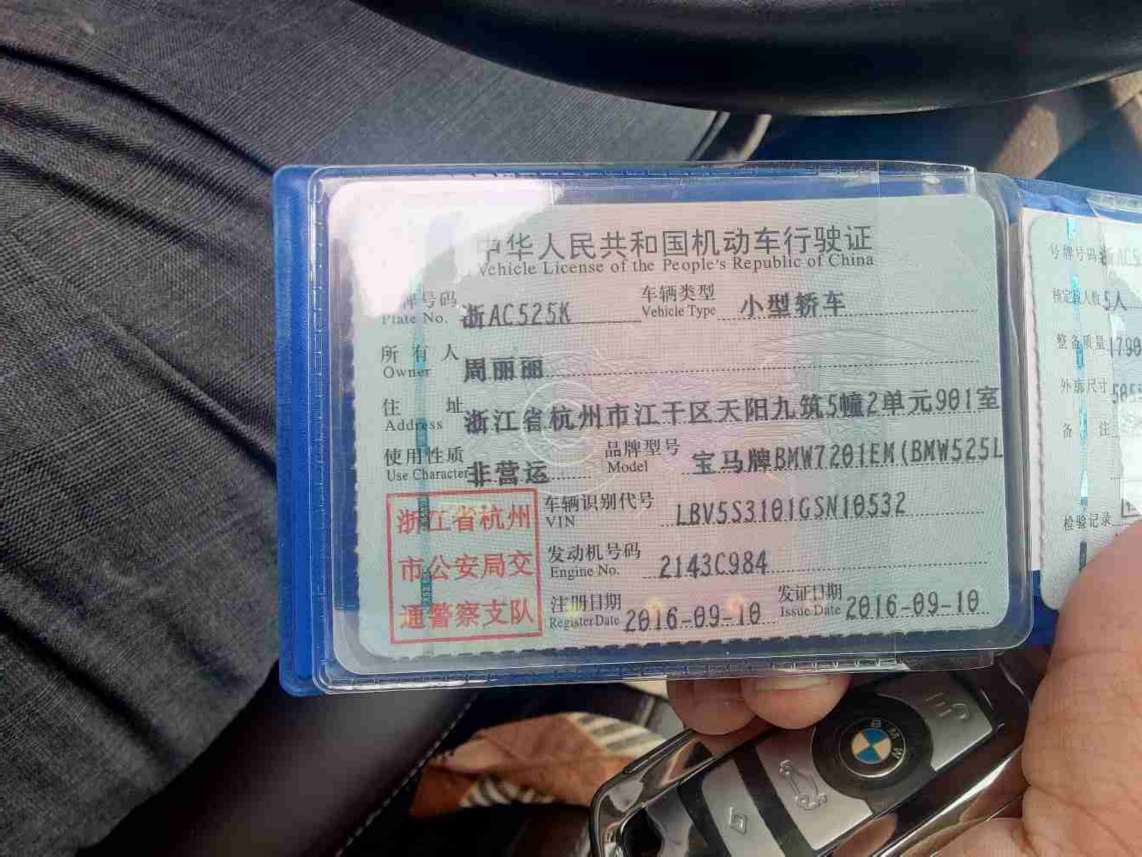 中华人民共和国机动车行驶证
Vehicle License of the People's Republic of China
号牌号码 浙AC525K 车辆类型 小型轿车
Plate No. Vehicle Type
所有人 周丽丽
Owner
住址 浙江省杭州市江干区天阳九筑5幢2单元901室
Address
使用性质 非营运 品牌型号 宝马牌BMW7201EM(BMW525L
Use Character Model
浙江省杭州
市公安局交
通警察支队
车辆识别代号 LBV5S3101GSN10532
VIN
发动机号码 2143C984
Engine No.
注册日期 2016-09-10 发证日期 2016-09-10
Register Date Issue Date
号牌号码 浙AC5
核定载人数 5人
整备质量 1790
外廓尺寸 505
备注
检验记录
BMW